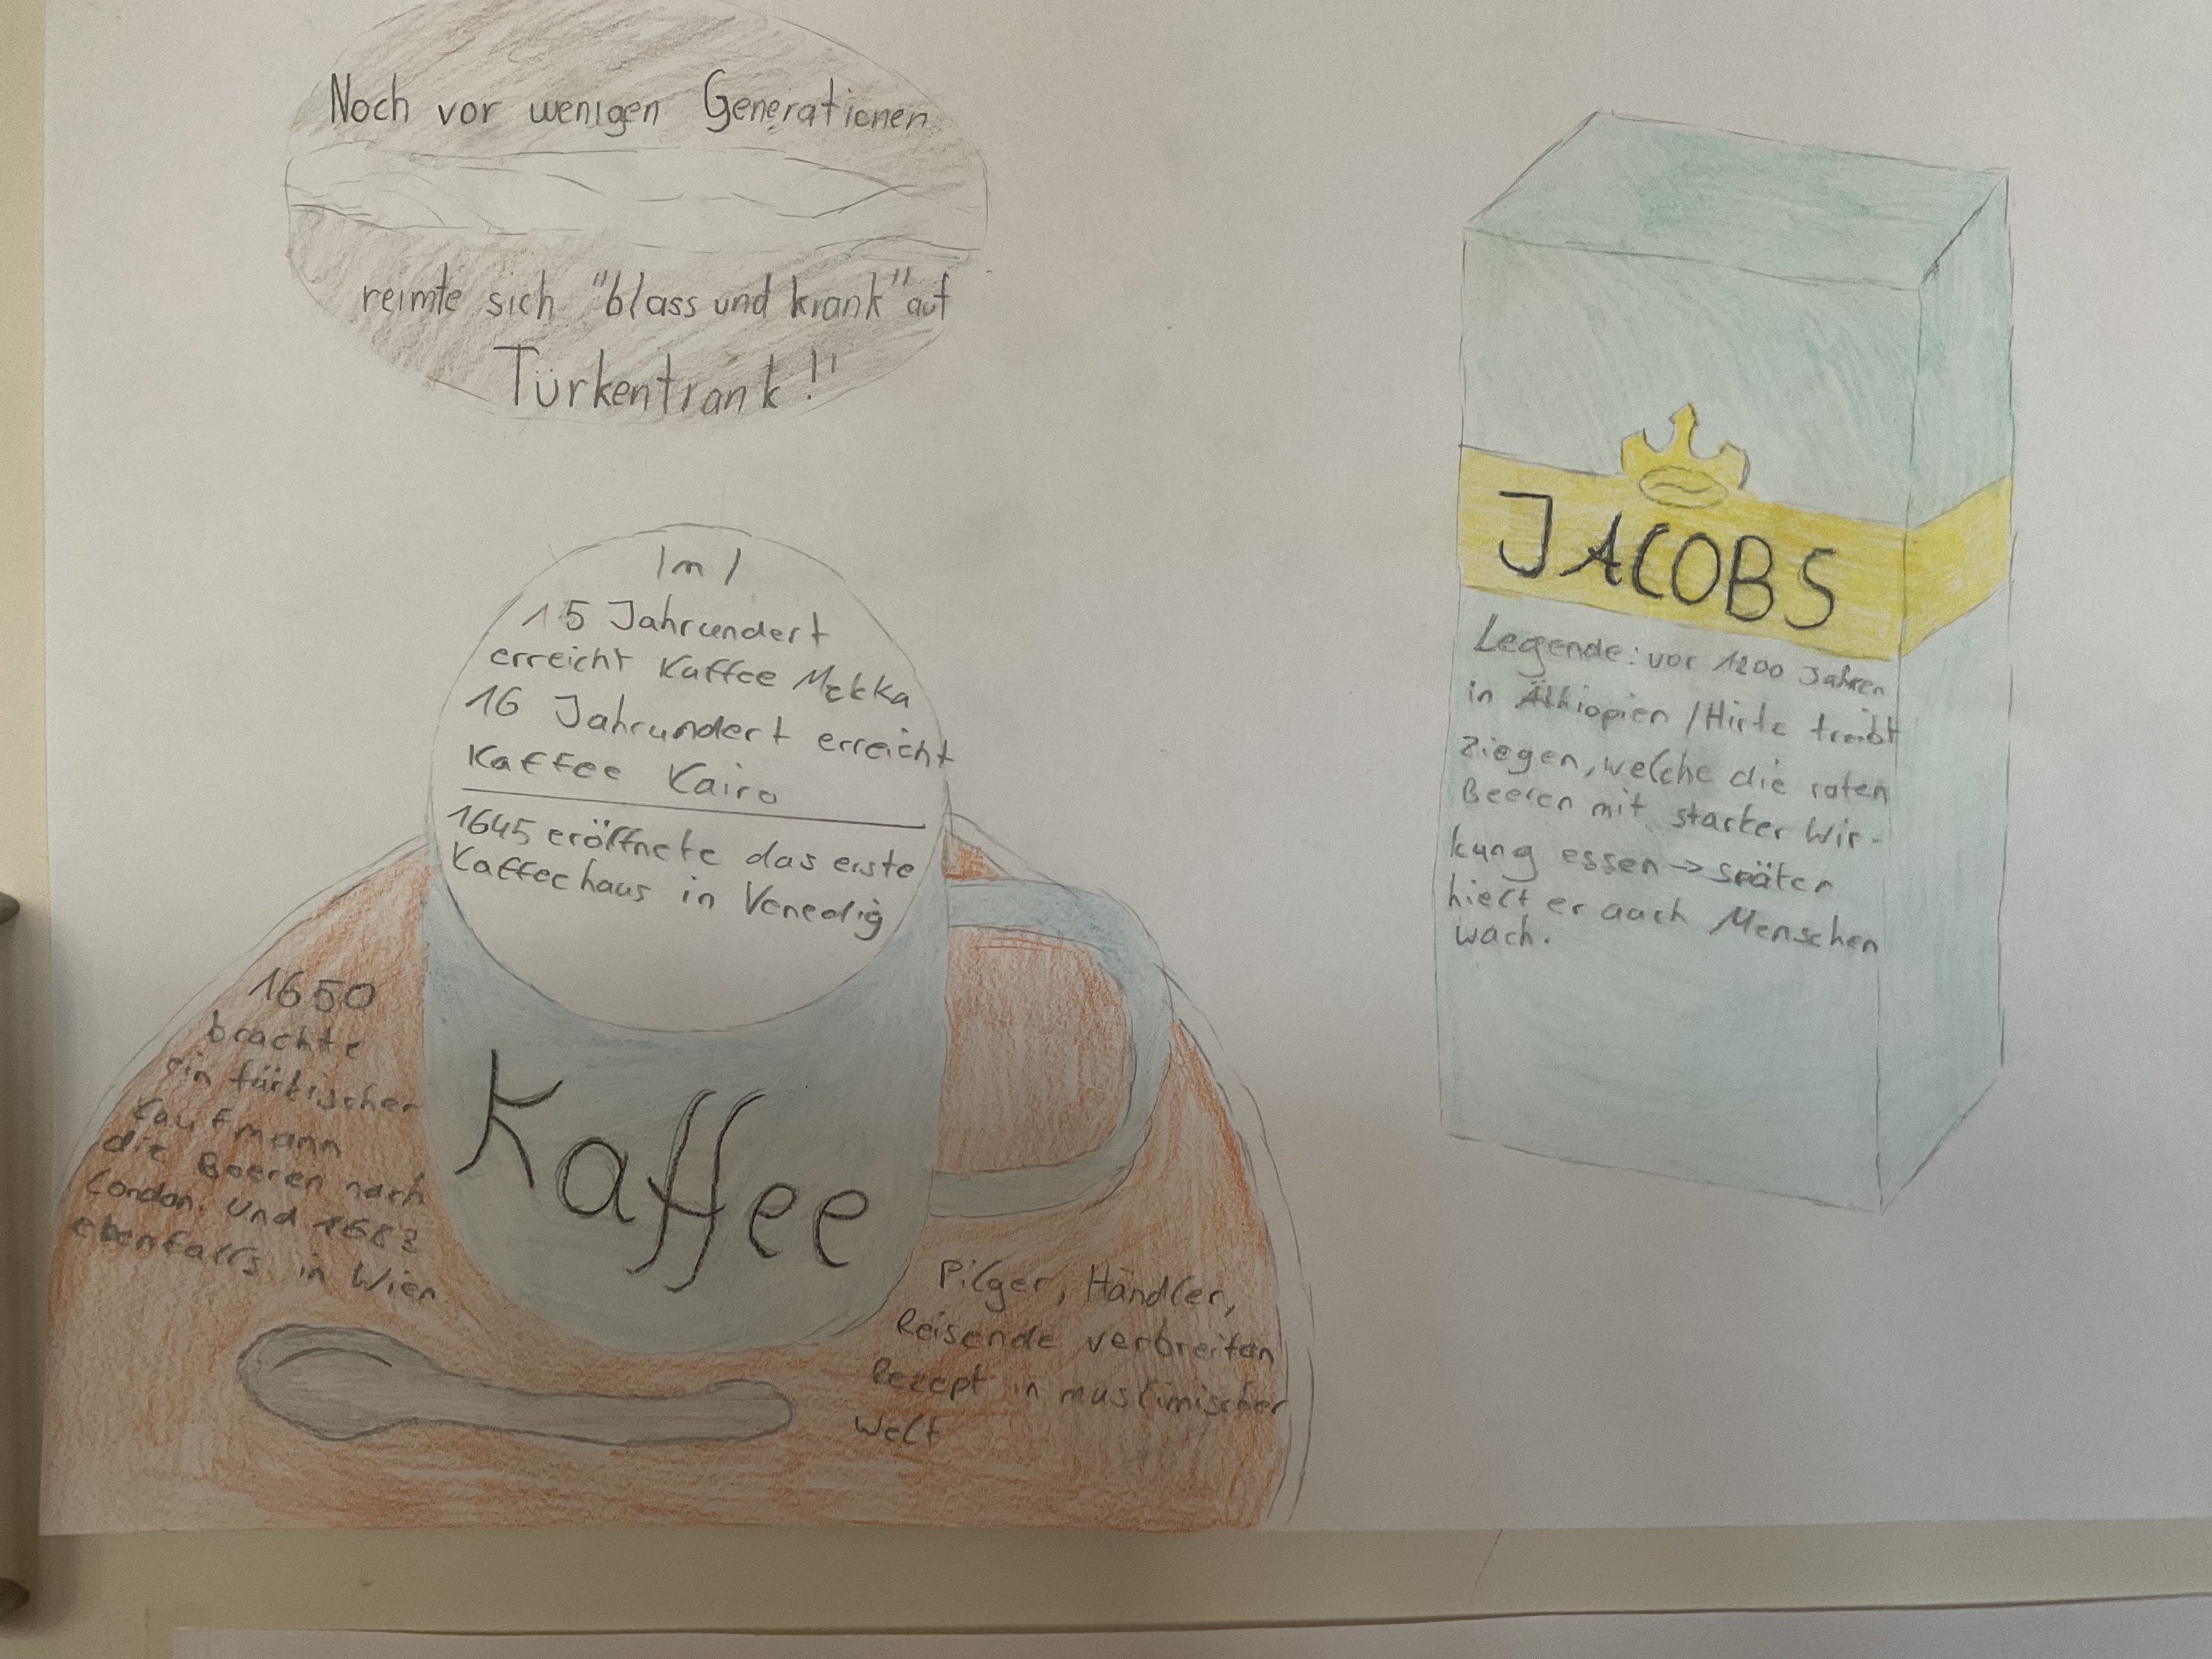 Noch vor wenigen Generationen
reimte sich "blass und krank" auf
Türkentrank!"
Im
15 Jahrundert
erreicht Kaffee Mekka
16 Jahrundert erreicht
Kaffee Kairo
1645 eröffnete das erste
Kaffeehaus in Venedig
Kaffee
1650
brachte
ein türkischer
Kaufmann
die Beeren nach
London. und 1683
ebenfalls in Wien
Pilger, Händler,
Reisende verbreiten
Rezept in muslimischer
Welt
JACOBS
Legende: vor 1200 Jahren
in Äthiopien / Hirte treibt
Ziegen, welche die roten
Beeren mit starker Wir-
kung essen → später
hielt er auch Menschen
wach.